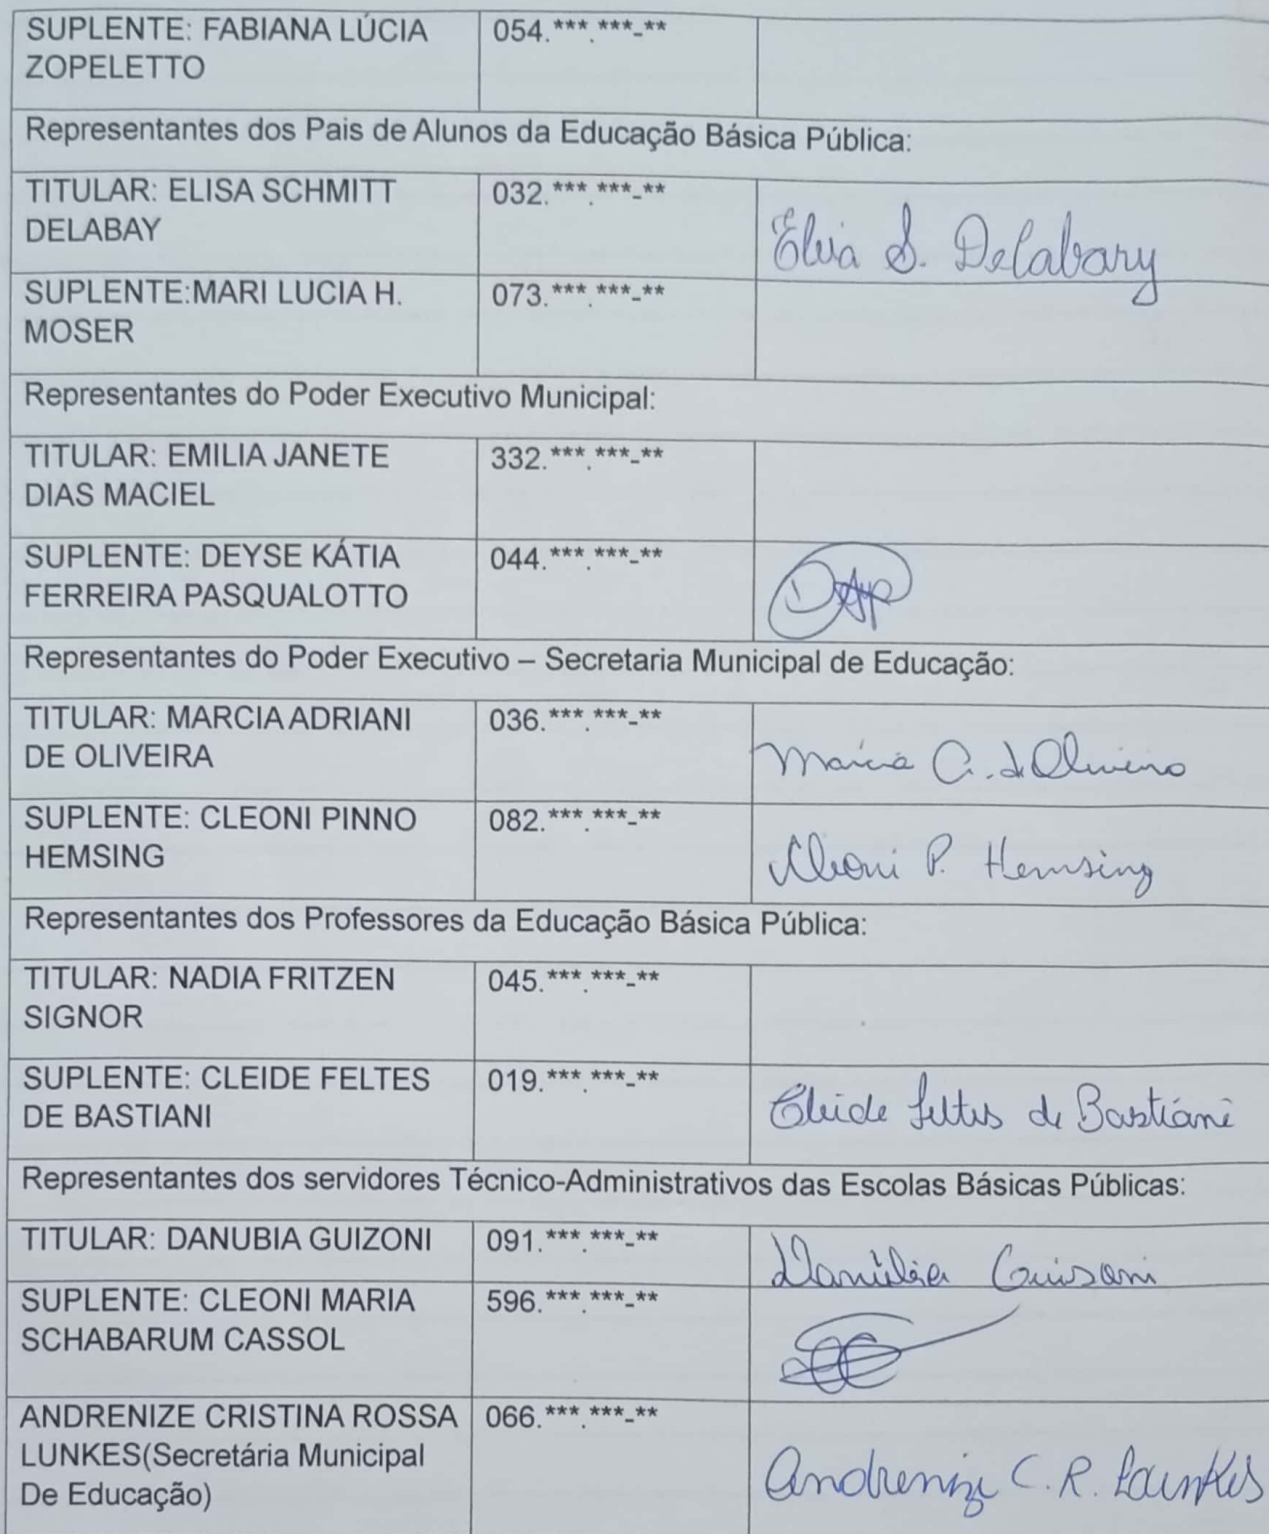 SUPLENTE: FABIANA LÚCIA 054.***.***-**
ZOPELETTO
Representantes dos Pais de Alunos da Educação Básica Pública:
TITULAR: ELISA SCHMITT 032.***.***-**
DELABAY
Elisa S. Delabary
SUPLENTE:MARI LUCIA H. 073.***.***-**
MOSER
Representantes do Poder Executivo Municipal:
TITULAR: EMILIA JANETE 332.***.***-**
DIAS MACIEL
SUPLENTE: DEYSE KÁTIA 044.***.***-**
FERREIRA PASQUALOTTO
Representantes do Poder Executivo – Secretaria Municipal de Educação:
TITULAR: MARCIA ADRIANI 036.***.***-**
DE OLIVEIRA
Marcia A. d Oliveira
SUPLENTE: CLEONI PINNO 082.***.***-**
HEMSING
Cleoni P. Hemsing
Representantes dos Professores da Educação Básica Pública:
TITULAR: NADIA FRITZEN 045.***.***-**
SIGNOR
SUPLENTE: CLEIDE FELTES 019.***.***-**
DE BASTIANI
Cleide Feltes de Bastiani
Representantes dos servidores Técnico-Administrativos das Escolas Básicas Públicas:
TITULAR: DANUBIA GUIZONI 091.***.***-**
Danúbia Guisoni
SUPLENTE: CLEONI MARIA 596.***.***-**
SCHABARUM CASSOL
ANDRENIZE CRISTINA ROSSA 066.***.***-**
LUNKES(Secretária Municipal
De Educação)
Andrenize C. R. Lunkes